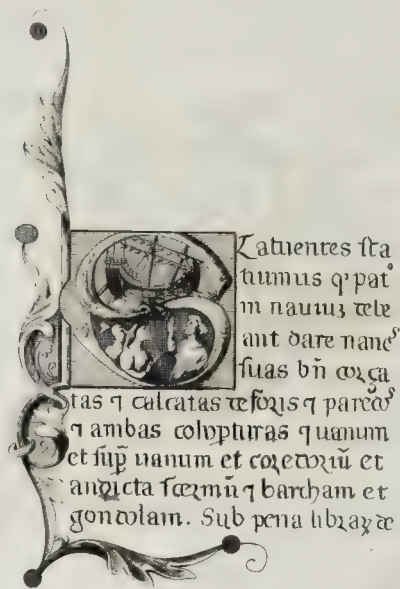 Statuentes sta
tuimus qꝫ patᵒ
ni nauiuꝫ tele
ant dare naueˢ
suas bn̄ corça
tas ⁊ calcatas deforis ⁊
⁊ ambas colupturas ⁊ uanum
et sup̄ uanum et coretoriū et
barcham et
gondolam. Sub pena libraꝝ de